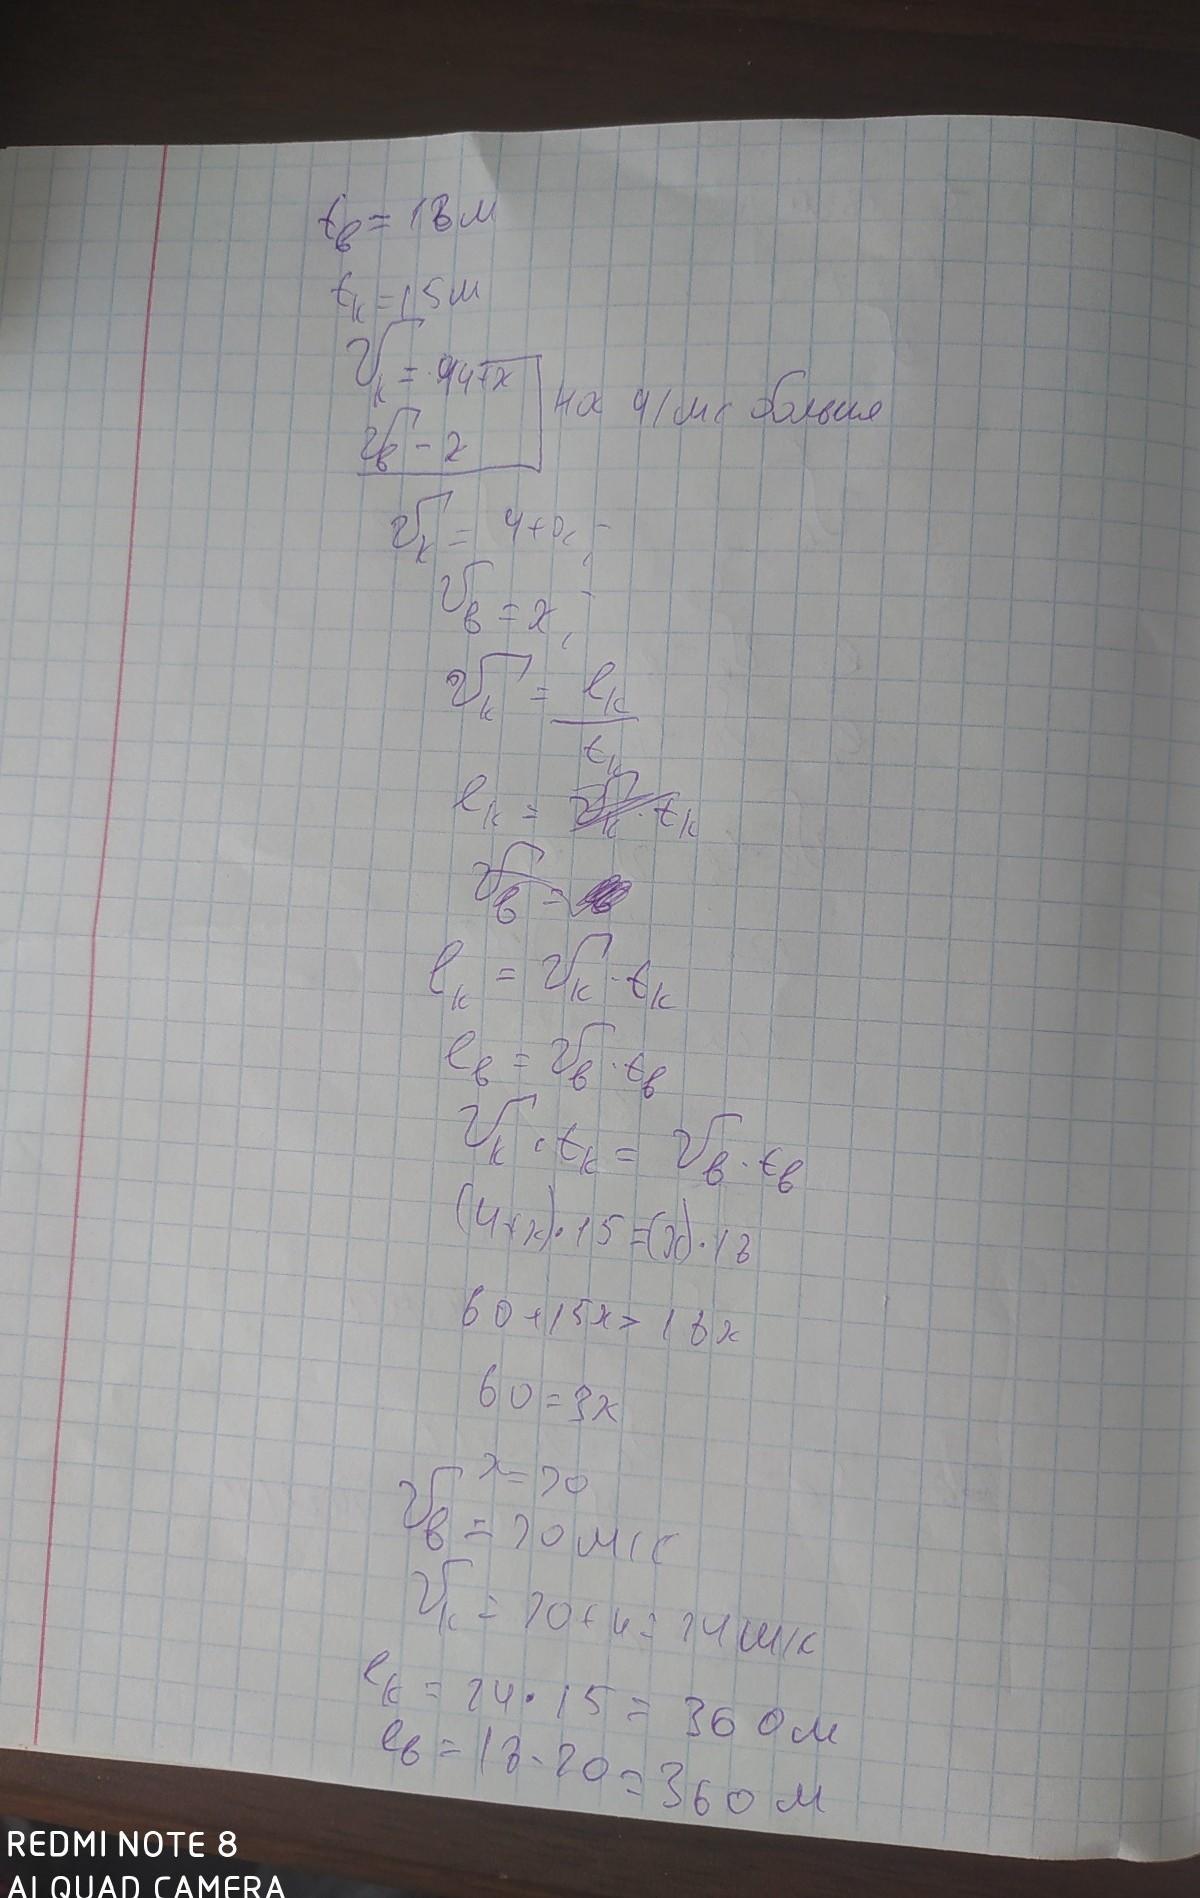 tв = 18м
tк = 15м
Vк = 4+x
Vв - x
на 4 м/с больше
Vк = 4+x;
Vв = x;
Vк = lк / tк
lк = Vк · tк
Vв =
lк = Vк · tк
lв = Vв · tв
Vк · tк = Vв · tв
(4+x)·15=(x)·18
60+15x=18x
60=3x
x=20
Vв = 20 м/с
Vк = 20+4= 24 м/с
lк = 24·15= 360м
lв = 18·20=360м
REDMI NOTE 8
AI QUAD CAMERA